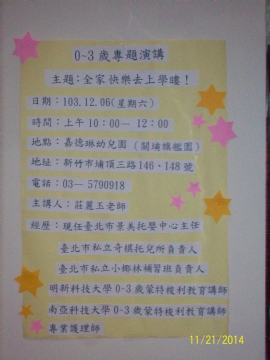 0~3歲專題演講
主題:全家快樂去上學嘍!
日期:103.12.06(星期六)
時間:上午10:00— 12:00
地點:嘉德琳幼兒園(關埔旗艦園)
地址:新竹市埔頂三路146、148號
電話:03— 5790918
主講人:莊麗玉老師
經歷:現任臺北市景美托嬰中心主任
臺北市私立奇模托兒所負責人
臺北市私立小椰林補習班負責人
明新科技大學0-3歲蒙特梭利教育講師
南亞科技大學0-3歲蒙特梭利教育講師
專業護理師
11/21/2014